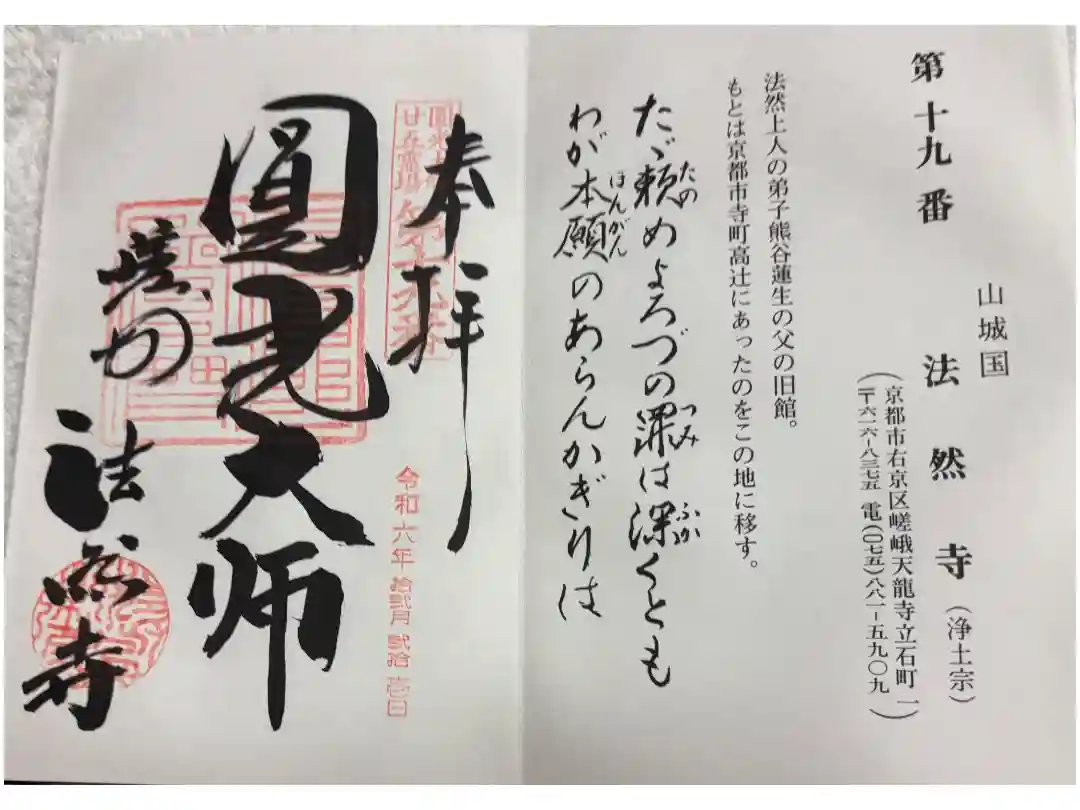 第十九番
山城国
法然寺(浄土宗)
(京都市右京区嵯峨天龍寺立石町一
〒六一六−八三七五 電(〇七五)八八一−五九〇九)
法然上人の弟子熊谷蓮生の父の旧館。
もとは京都市寺町高辻にあったのをこの地に移す。
たゞ頼めよろづの罪は深くとも
たの
つみ
ふか
わが本願のあらんかぎりは
ほんがん
奉拝
第十九番
令和六年拾弐月弐拾壱日
圓光大師
法然寺